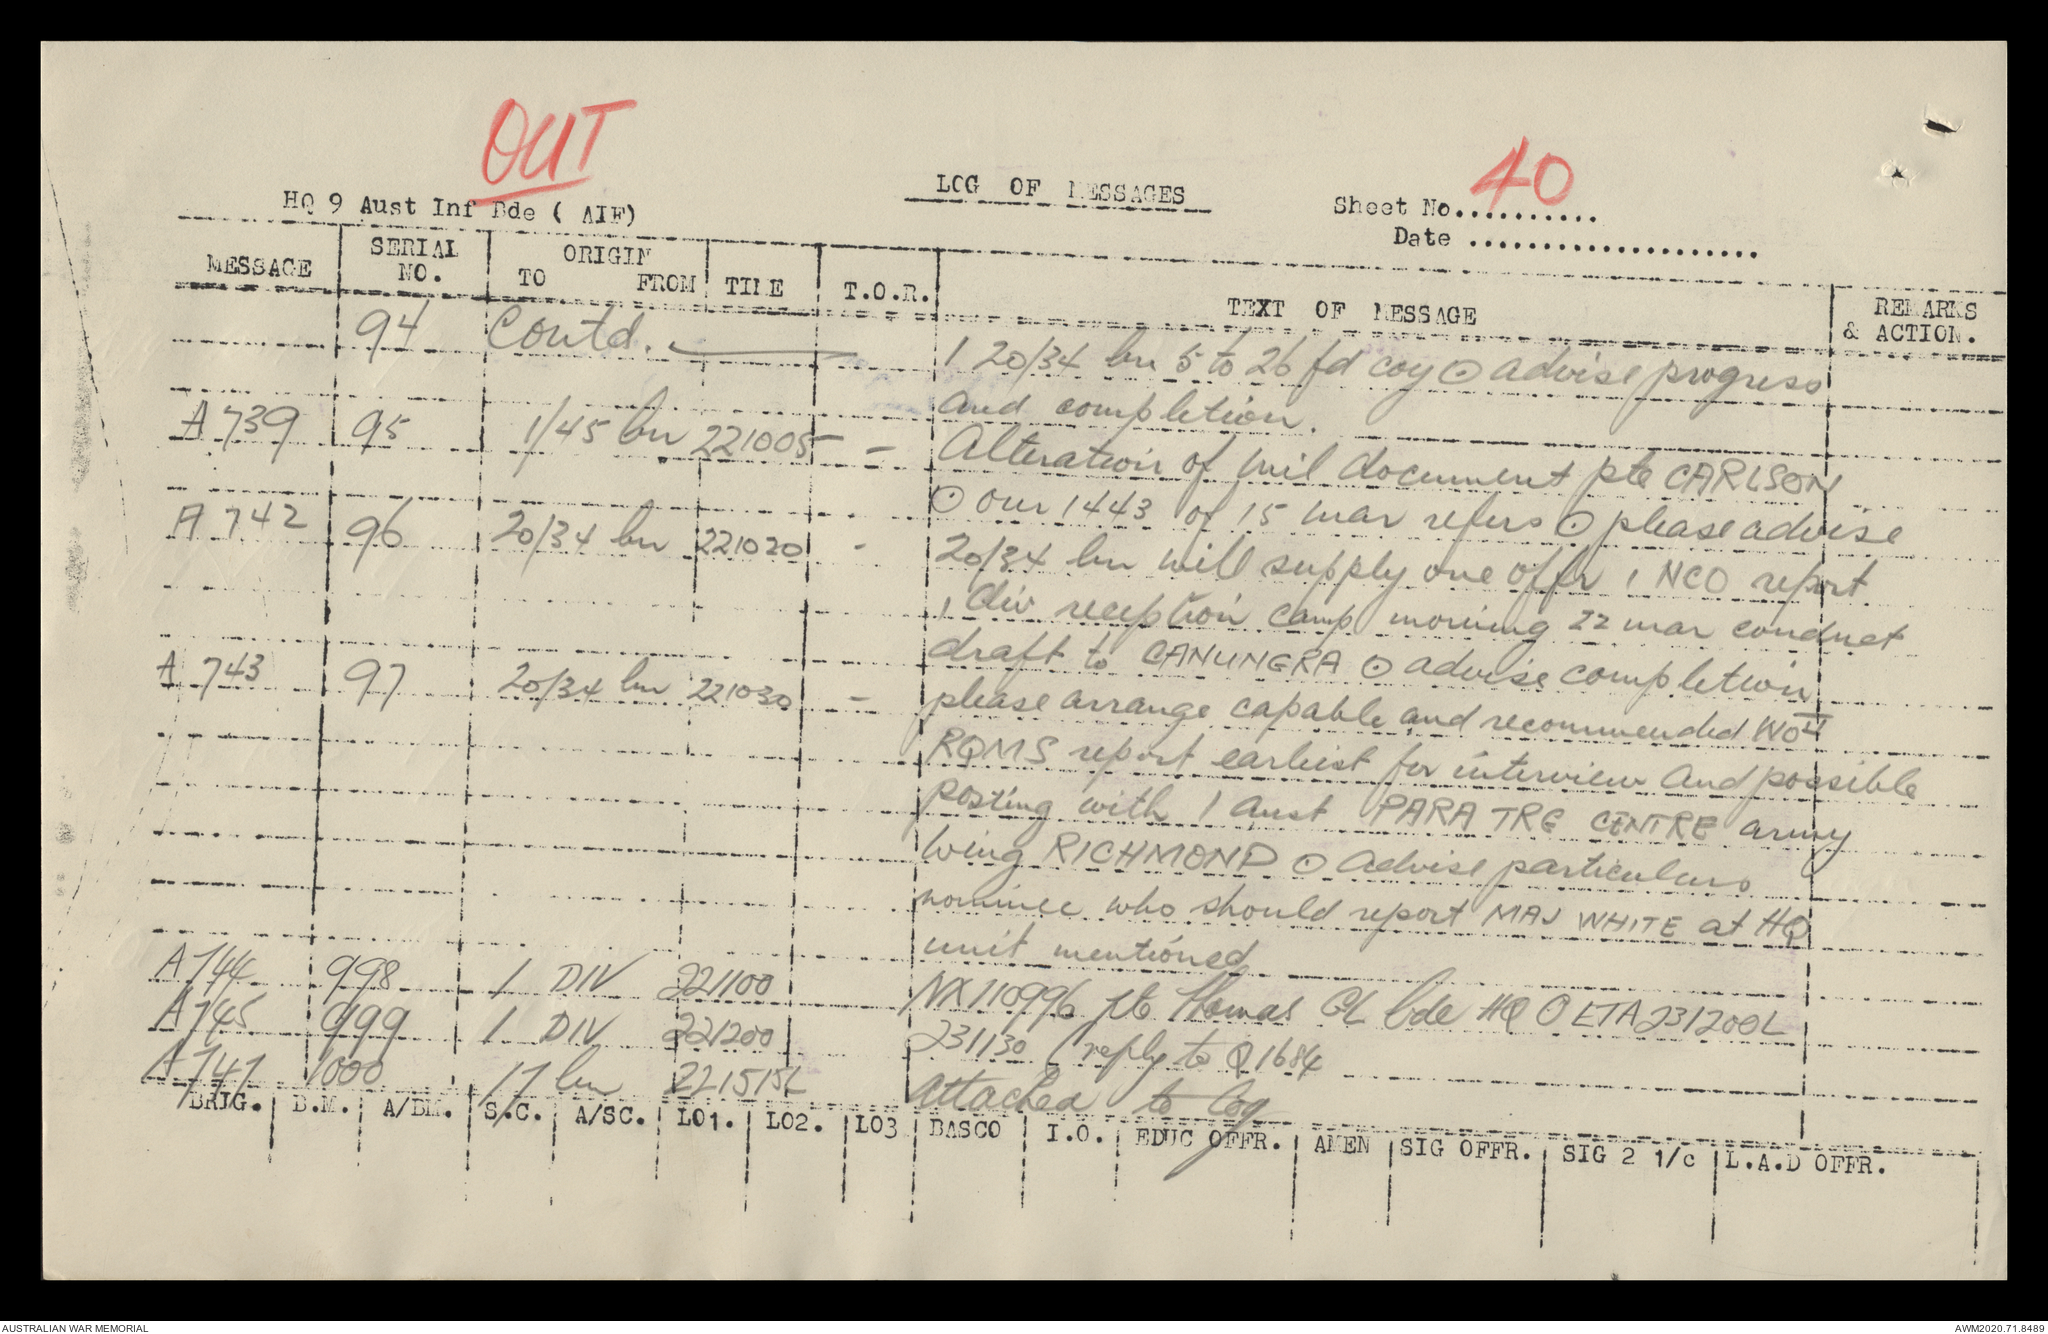 OUT
HQ 9 Aust Inf Bde ( AIF)
LOG OF MESSAGES
Sheet No.......... 40
Date ....................
MESSAGE
SERIAL NO.
ORIGIN
TO FROM
TIME
T.O.R.
TEXT OF MESSAGE
REMARKS & ACTION.
94 Contd.
1 20/34 bn 5 to 26 fd coy ⊙ advise progress
and completion.
A 739 95 1/45 bn 221005 - Alteration of mil document pte CARLSON
⊙ our 1443 of 15 mar refers ⊙ please advise
A 742 96 20/34 bn 221020 - 20/34 bn will supply one offr 1 NCO report
1 div reception camp morning 22 mar conduct
draft to CANUNGRA ⊙ advise completion
A 743 97 20/34 bn 221030 - please arrange capable and recommended WO II
RQMS report earliest for interview and possible
posting with 1 aust PARA TRG CENTRE army
wing RICHMOND ⊙ advise particulars
nominee who should report MAJ WHITE at HQ
unit mentioned
A744 998 1 DIV 221100 NX110996 pte Thomas GL bde HQ ⊙ ETA 231200L
A745 999 1 DIV 221200 231130 (reply to Q 1684
A747 1000 17 bn 221515L attached to log
BRIG. B.M. A/BM. S.C. A/SC. LO1. LO2. LO3 BASCO I.O. EDUC OFFR. AMEN SIG OFFR. SIG 2 1/c L.A.D OFFR.
AUSTRALIAN WAR MEMORIAL
AWM2020.71.8489